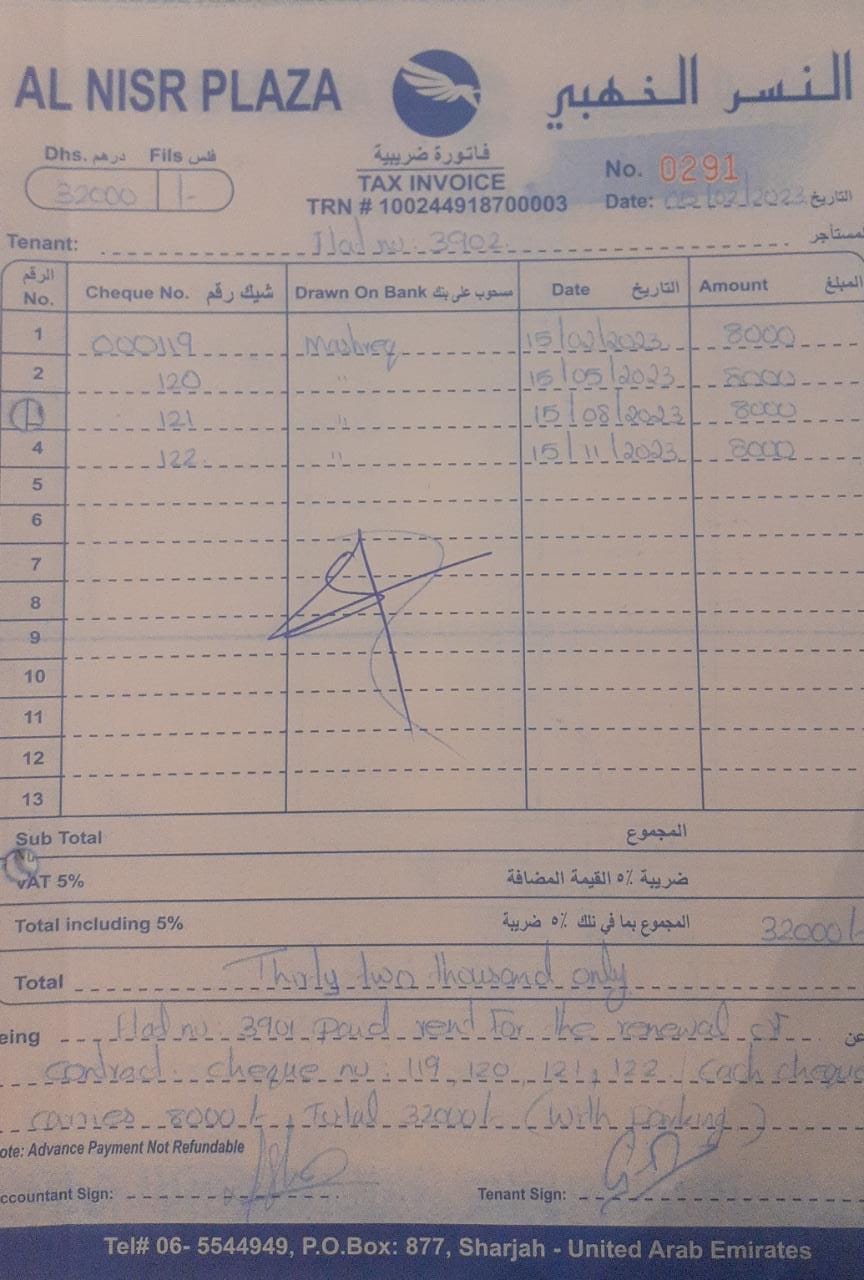 AL NISR PLAZA النسر الذهبي
Dhs. درهم Fils فلس
32000 /-
فاتورة ضريبية
TAX INVOICE
TRN # 100244918700003
No. 0291
Date: 05/02/2023 التاريخ
Tenant: Flat no: 3902 المستأجر
الرقم No. Cheque No. شيك رقم Drawn On Bank مسحوب على بنك Date التاريخ Amount المبلغ
1 000119 Mashreq 15/02/2023 8000
2 120 " 15/05/2023 8000
121 " 15/08/2023 8000
4 122 " 15/11/2023 8000
5
6
7
8
9
10
11
12
13
Sub Total المجموع
VAT 5% ضريبة ٥٪ القيمة المضافة
Total including 5% المجموع بما في ذلك ٥٪ ضريبة 32000/-
Total Thirty two thousand only
eing Flat no: 3901 paid rent for the renewal of عن
contract. cheque no: 119, 120, 121, 122. Each cheque
carries 8000/-, Total 32000/- (with parking)
ote: Advance Payment Not Refundable
ccountant Sign: Tenant Sign:
Tel# 06- 5544949, P.O.Box: 877, Sharjah - United Arab Emirates